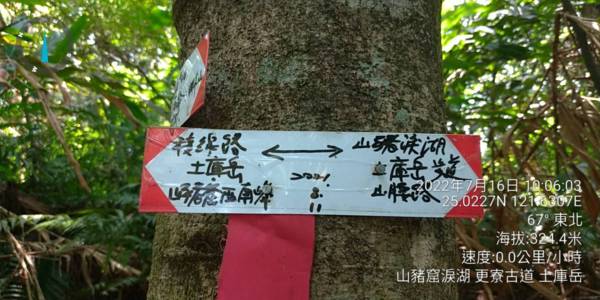 稜線路 ←→ 山豬淚湖
土庫岳 土庫岳步道
山豬窟西南峰 山腰路
8.
11
2022年7月16日 10:06:03
67° 東北
海拔:324.4米
速度:0.0公里/小時
山豬窟淚湖 更寮古道 土庫岳